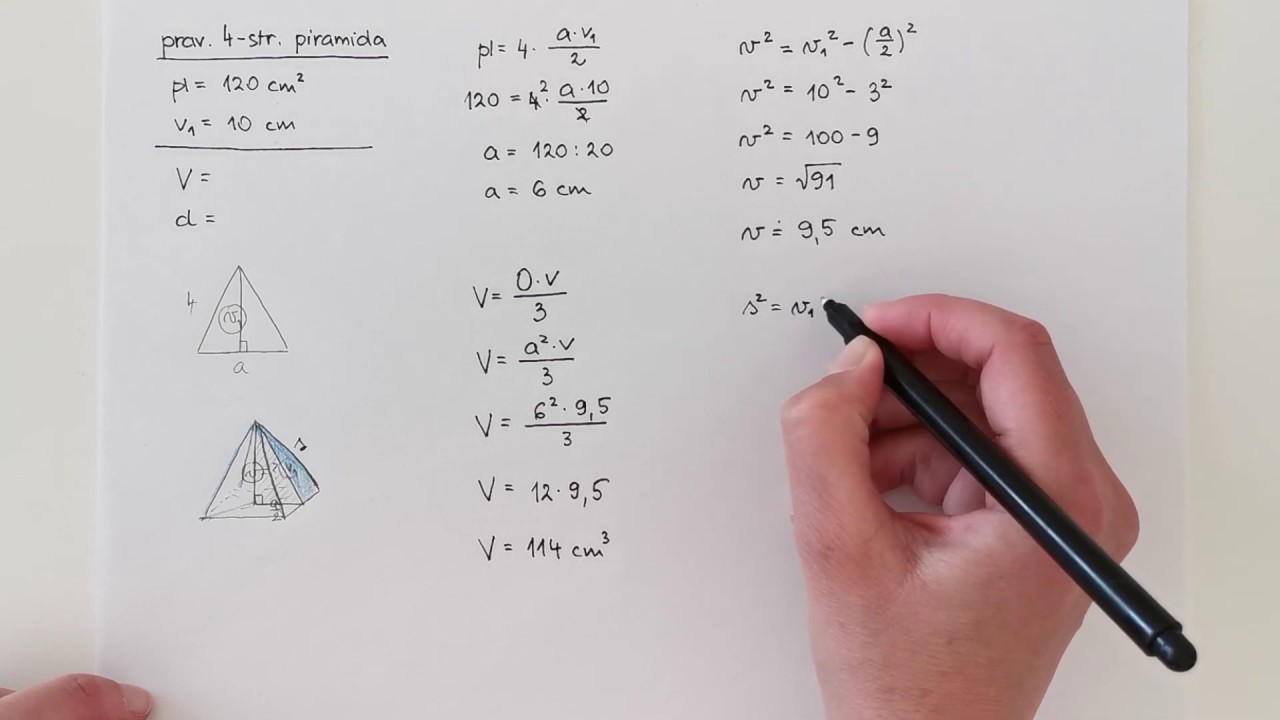 prav. 4-str. piramida
pl = 120 cm²
v₁ = 10 cm
V =
d =
4
v₁
a
s
v
v₁
a/2
pl = 4 · a·v₁/2
120 = 4² · a·10/2
a = 120 : 20
a = 6 cm
V = O·v/3
V = a²·v/3
V = 6²·9,5/3
V = 12·9,5
V = 114 cm³
v² = v₁² - (a/2)²
v² = 10² - 3²
v² = 100 - 9
v = √91
v ≐ 9,5 cm
s² = v₁